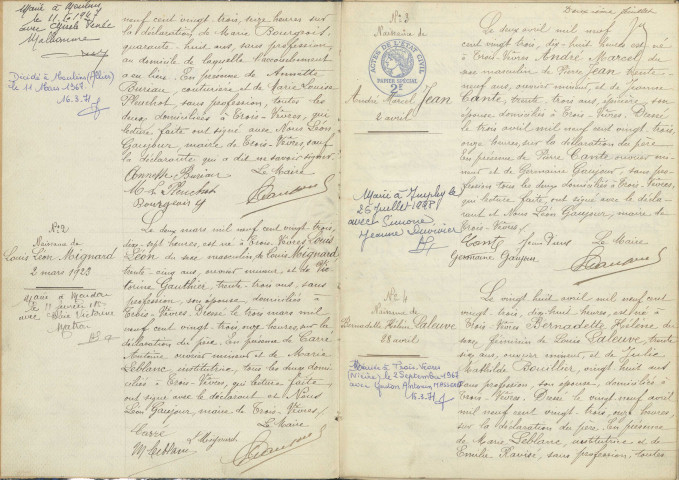 Marié à Moulins
le 11.10.1947
avec
Malhamme
Décédé à Moulins (Allier)
le 11 Mars 1967
16.3.71
neuf cent vingt trois, onze heures sur
la déclaration de Marie Bourgeois,
quarante-huit ans, sans profession,
au domicile de laquelle l'accouchement
a eu lieu. En présence de Annette
Bureau, couturière et de Marie Louise
Pluchot sans profession, toutes les
deux domiciliées à Trois-Vèvres, qui
lecture faite ont signé avec Nous Léon
Gaujour, maire de Trois-Vèvres, sauf
la déclarante qui a dit ne savoir signer.
Le Maire
No 2
Naissance de
Louis Léon Mignard
2 mars 1923
Marié à
le
avec
Le deux mars mil neuf cent vingt trois,
dix-sept heures, est né à Trois-Vèvres Louis
Léon du sexe masculin de Louis Mignard
trente-cinq ans, ouvrier mineur et de Vic-
torine Gauthier, trente trois ans, sans
profession, son épouse, domiciliés à
Trois-Vèvres. Dressé le trois mars mil
neuf cent vingt-trois, onze heures, sur la
déclaration du père. En présence de Carré
Antoine, ouvrier mineur et de Marie
Leblanc, institutrice, tous les deux domi-
ciliés à Trois-Vèvres, qui lecture faite
ont signé avec le déclarant et Nous
Léon Gaujour, maire de Trois-Vèvres /
Le Maire
Carré
L Mignard
M Leblanc
Deuxième feuillet
No 3
Naissance de
ACTES DE L'ÉTAT CIVIL
PAPIER SPÉCIAL
2F
André Marcel Jean
2 avril
Marié à Imphy le
25 juillet 1948
avec Simone
Jeanne Duvivier
Le deux avril mil neuf
cent vingt trois, dix-huit heures est né
à Trois-Vèvres André Marcel, du
sexe masculin de Pierre Jean, trente-
neuf ans, ouvrier mineur, et de Jeanne
Cante, trente trois ans, épicière, son
épouse domiciliés à Trois-Vèvres. Dressé
le trois avril mil neuf cent vingt trois,
onze heures sur la déclaration du père.
En présence de Pierre Cante ouvrier mi-
neur et de Germaine Gaujour, sans pro-
fession tous les deux domiciliés à Trois-Vèvres,
qui lecture faite, ont signé avec le décla-
rant et Nous Léon Gaujour, maire de
Trois-Vèvres /
Le Maire
Germaine Gaujour
No 4
Naissance de
Bernadette Hélène Laleuve
28 avril
Mariée à Trois-Vèvres
(Nièvre) le 2 Septembre 1967
avec Gaston Antonin
15.3.71
Le vingt huit avril mil neuf cent
vingt trois, dix-huit heures, est née à
Trois Vèvres Bernadette Hélène du
sexe féminin de Louis Laleuve, trente
six ans, ouvrier mineur, et de Julie
Mathilde Bouillier, vingt neuf ans
sans profession, son épouse, domiciliés à
Trois-Vèvres. Dressé le vingt neuf avril
mil neuf cent vingt trois, onze heures,
sur la déclaration du père. En présence
de Marie Leblanc, institutrice et de
Emilie Ravisé, sans profession, toutes